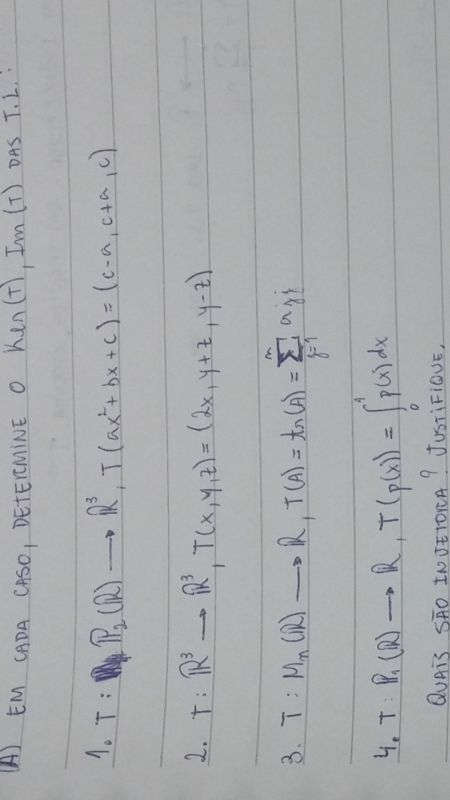 (A) EM CADA CASO, DETERMINE O Ker(T), Im(T) DAS T.L.:
1. T: P₂(ℝ) → ℝ³, T(ax²+bx+c) = (c-a, c+a, c)
2. T: ℝ³ → ℝ³, T(x,y,z) = (2x, y+z, y-z)
3. T: Mₙ(ℝ) → ℝ, T(A) = tr(A) = ∑ⁿⱼ₌₁ ajj
4. T: P₁(ℝ) → ℝ, T(p(x)) = ∫₀¹ p(x)dx
QUAIS SÃO INJETORA? JUSTIFIQUE.